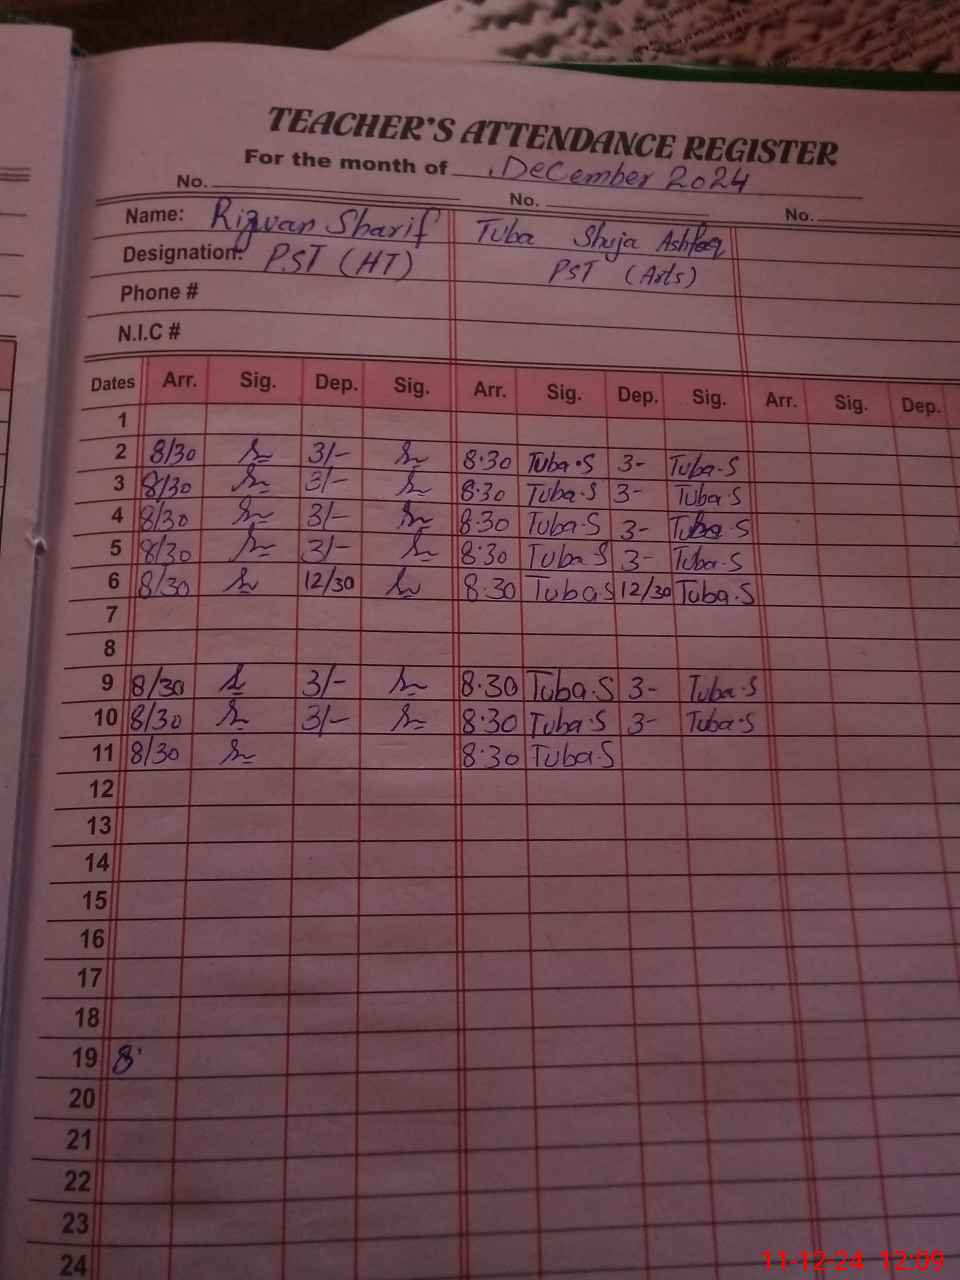 TEACHER'S ATTENDANCE REGISTER
For the month of December 2024
No. No. No.
Name: Rizwan Sharif Tuba Shuja Ashfaq
Designation: PST (HT) PST (Arts)
Phone #
N.I.C #
Dates Arr. Sig. Dep. Sig. Arr. Sig. Dep. Sig. Arr. Sig. Dep.
1
2 8/30 3/- 8.30 Tuba.S 3- Tuba.S
3 8/30 3/- 8.30 Tuba.S 3- Tuba.S
4 8/30 3/- 8.30 Tuba.S 3- Tuba.S
5 8/30 3/- 8.30 Tuba S 3- Tuba.S
6 8/30 12/30 8.30 Tuba S 12/30 Tuba.S
7
8
9 8/30 3/- 8.30 Tuba.S 3- Tuba.S
10 8/30 3/- 8.30 Tuba.S 3- Tuba.S
11 8/30 8.30 Tuba.S
12
13
14
15
16
17
18
19 8.
20
21
22
23
24
11-12-24 12:09